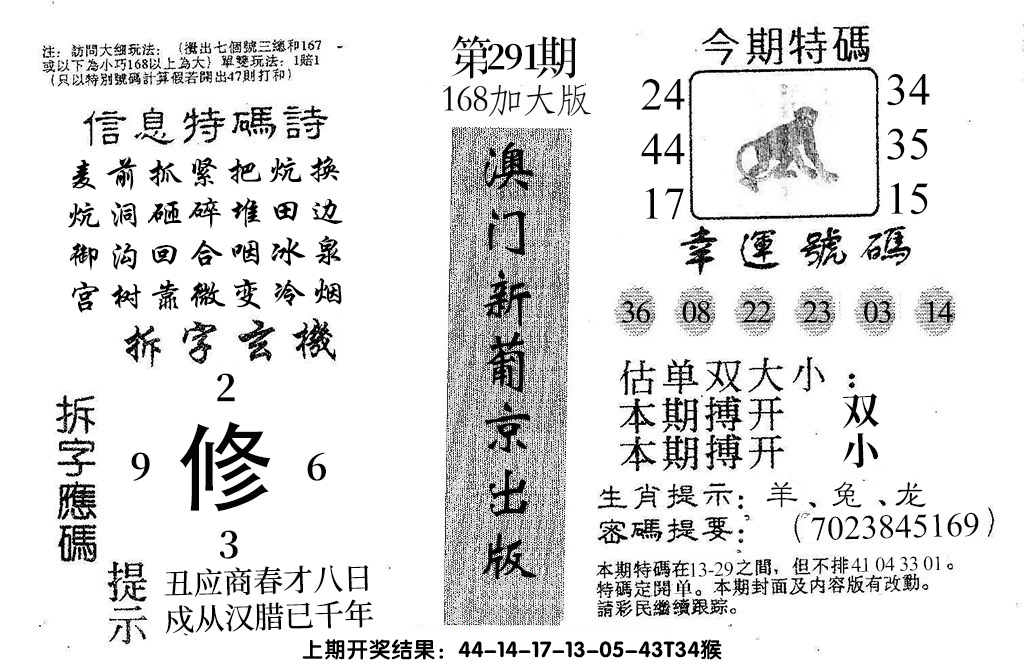 注：訪問大細玩法：（攪出七個號三總和167
或以下為小巧168以上為大）單雙玩法：1賠1
（只以特別號碼計算假若開出47則打和）
信息特碼詩
麦前抓紧把炕换
炕洞砸碎堆田边
御沟回合咽冰泉
宫树靠微变冷烟
拆字玄機
拆字應碼
2
9 修 6
3
提示
丑应商春才八日
戍从汉腊已千年
第291期
168加大版
澳门新葡京出版
今期特碼
24 34
44 35
17 15
幸運號碼
36 08 22 23 03 14
估单双大小：
本期搏开 双
本期搏开 小
生肖提示：羊、兔、龙
密碼提要：（7023845169）
本期特碼在13-29之間，但不排41 04 33 01。
特碼定開单。本期封面及内容版有改動。
請彩民繼續跟踪。
上期开奖结果：44-14-17-13-05-43T34猴